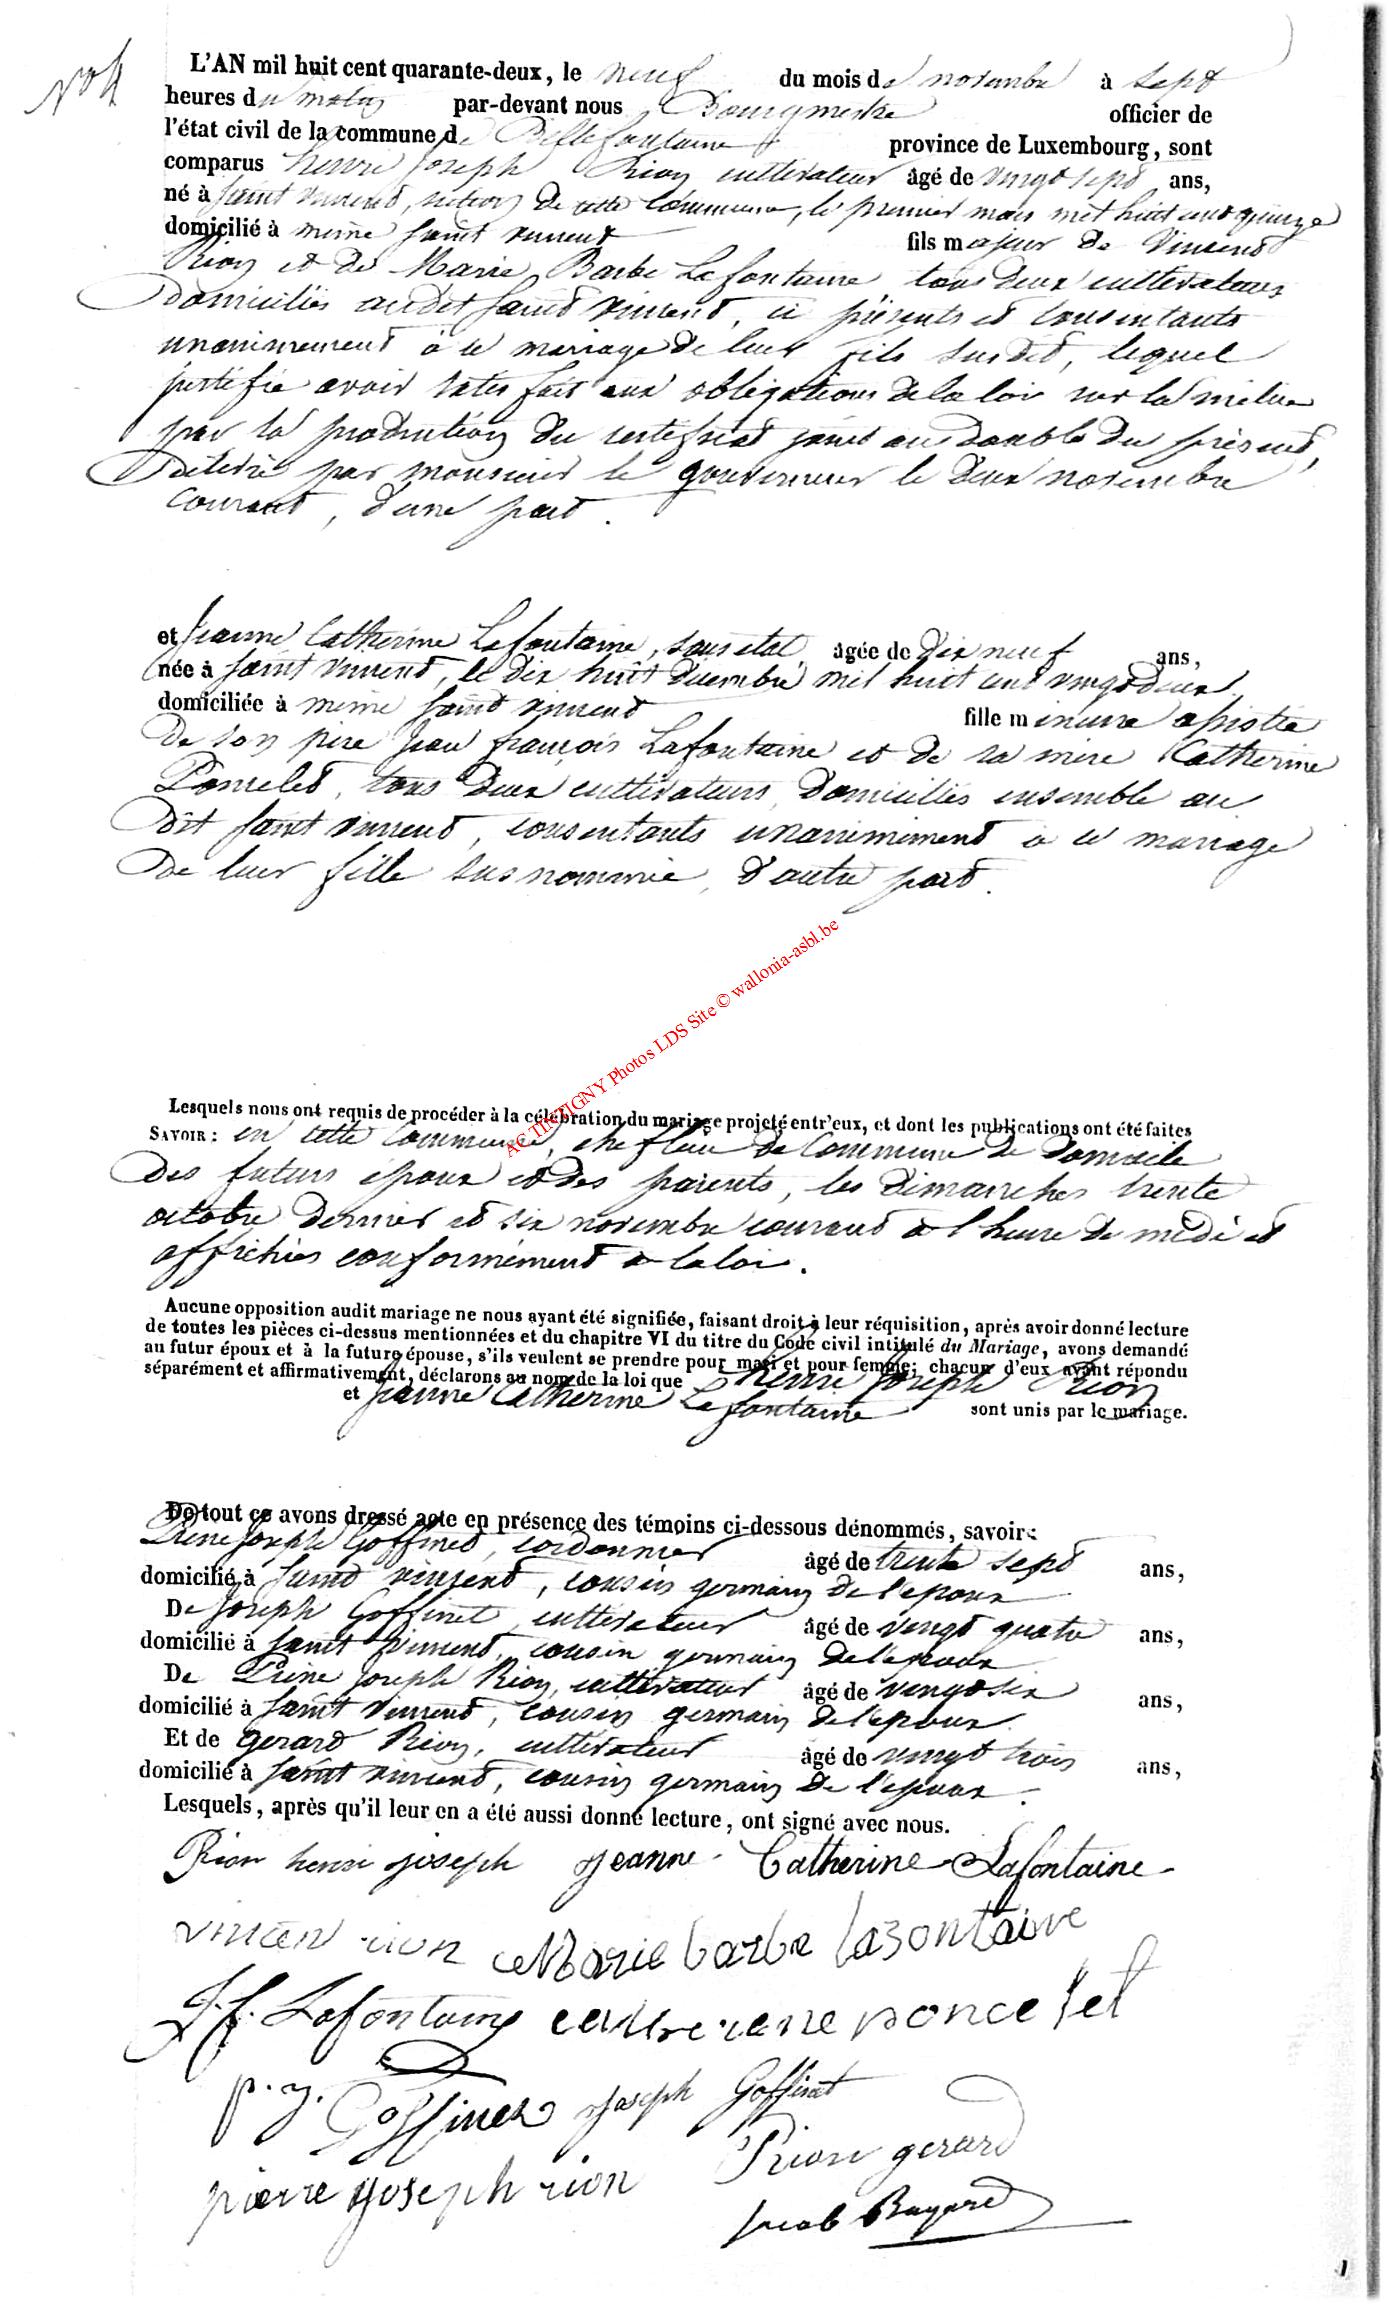 No 4
L'AN mil huit cent quarante-deux, le neuf du mois de novembre à sept
heures du matin par-devant nous Bourgmestre officier de
l'état civil de la commune de Bellefontaine province de Luxembourg, sont
comparus henri Joseph Rion cultivateur âgé de vingt sept ans,
né à Saint vincent, section de cette Commune, le premier mars mil huit cent quinze
domicilié à même Saint vincent fils majeur de Vincent
Rion et de Marie Barbe Lafontaine tous deux cultivateurs
Domiciliés audit Saint vincent, ci présents et consentants
unanimement à ce mariage de leur fils susdit, lequel
justifie avoir satisfait aux obligations de la loi sur la milice
par la production du certificat joint au double du présent,
Délivré par monsieur le gouverneur le deux novembre
courant, d'une part.
et Jeanne Catherine Lafontaine, sans etat, âgée de dix neuf ans,
née à Saint vincent, le dix huit decembre mil huit cent vingt deux
domiciliée à même Saint vincent fille mineure
de son père Jean françois Lafontaine et de sa mère Catherine
Poncelet, tous deux cultivateurs, domiciliés ensemble au
dit Saint vincent, consentants unanimement à ce mariage
de leur fille susnommée, d'autre part.
AC TINTIGNY Photos LDS Site © wallonia-asbl.be
Lesquels nous ont requis de procéder à la célébration du mariage projeté entr'eux, et dont les publications ont été faites
SAVOIR: en cette Commune, chef lieu de Commune de domicile
des futurs époux et des parents, les dimanches trente
octobre dernier et six novembre courant à l'heure de midi et
affichés conformément à la loi.
Aucune opposition audit mariage ne nous ayant été signifiée, faisant droit à leur réquisition, après avoir donné lecture
de toutes les pièces ci-dessus mentionnées et du chapitre VI du titre du Code civil intitulé du Mariage, avons demandé
au futur époux et à la future épouse, s'ils veulent se prendre pour mari et pour femme; chacun d'eux ayant répondu
séparément et affirmativement, déclarons au nom de la loi que henri Joseph Rion
et Jeanne Catherine Lafontaine sont unis par le mariage.
De tout ce avons dressé acte en présence des témoins ci-dessous dénommés, savoir:
Pierre Joseph Goffinet, cordonnier âgé de trente sept ans,
domicilié à Saint vincent, cousin germain de l'epoux
De Joseph Goffinet, cultivateur âgé de vingt quatre ans,
domicilié à Saint vincent, cousin germain de l'epoux
De Pierre Joseph Rion, cultivateur âgé de vingt six ans,
domicilié à Saint vincent, cousin germain de l'epoux
Et de gerard Rion, cultivateur âgé de vingt trois ans,
domicilié à Saint vincent, cousin germain de l'epoux.
Lesquels, après qu'il leur en a été aussi donné lecture, ont signé avec nous.
Rion henri joseph Jeanne Catherine Lafontaine
vincen rion Marie barbe lafontaine
J. f. Lafontaine catherene poncelet
p. j. Goffinet Joseph Goffinet
pierre joseph rion Rion gerard
Jacob Bayard